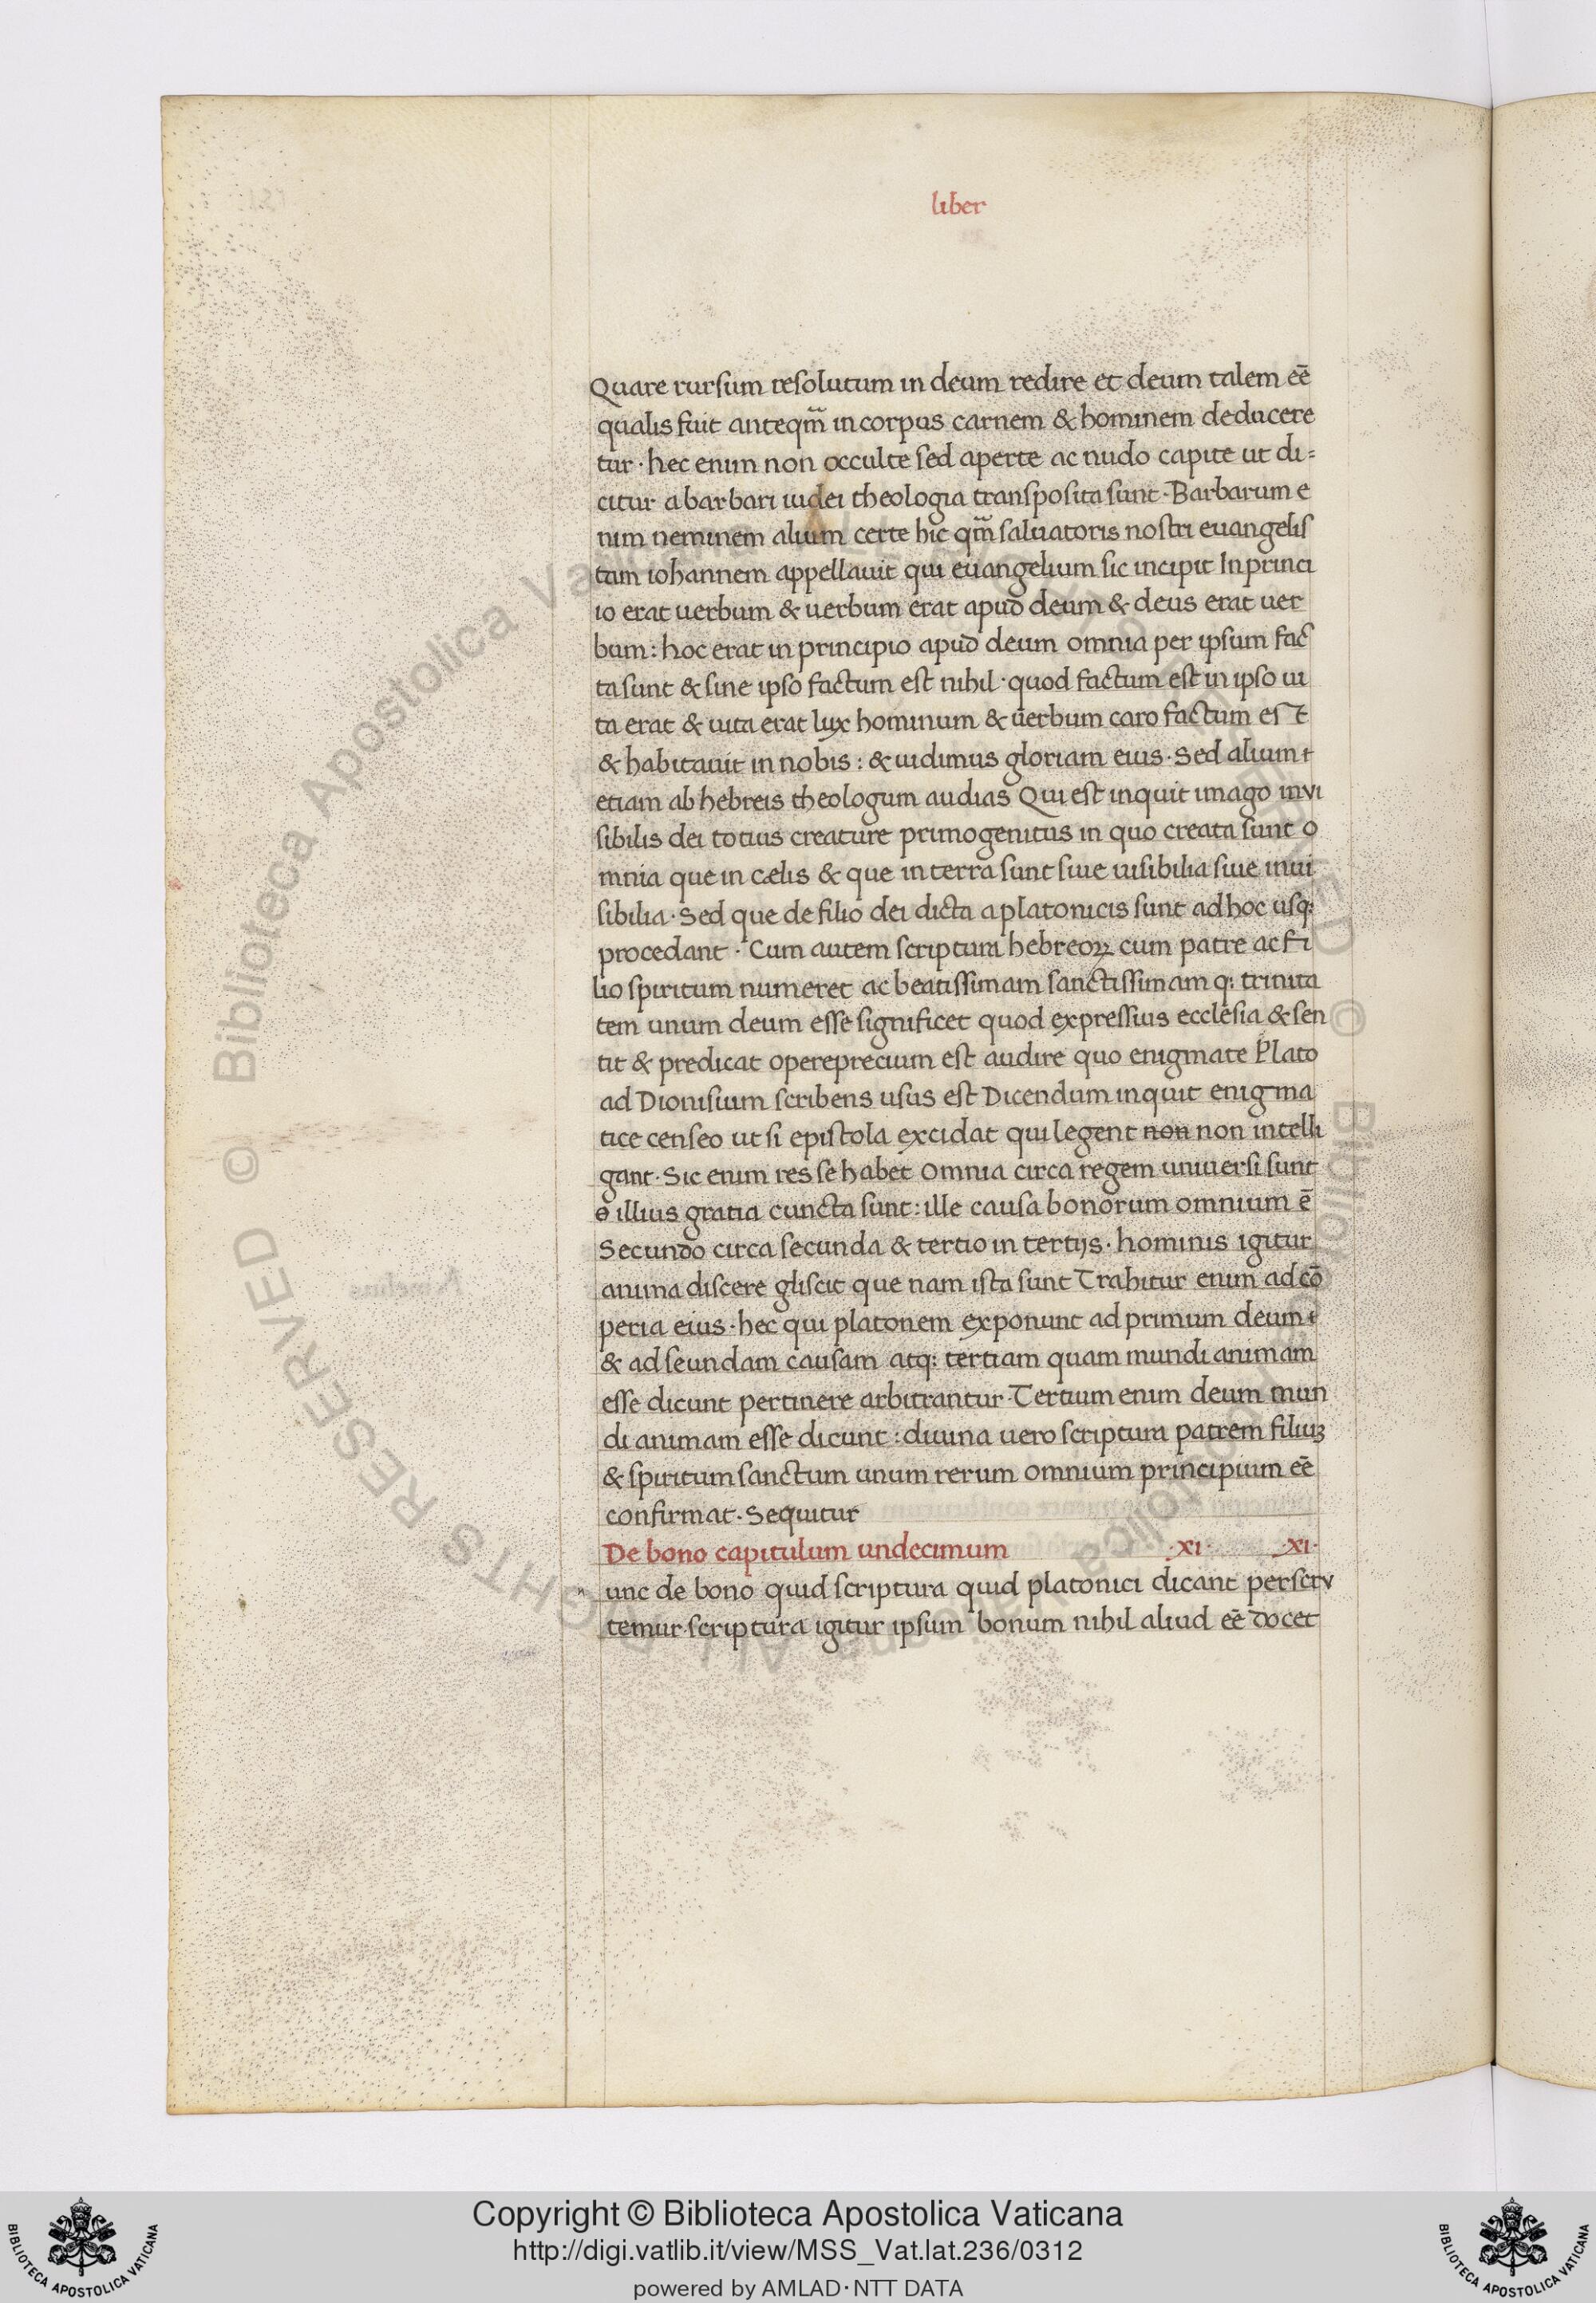 liber
Quare rursum resolutum in deum redire et deum talem eē
qualis fuit anteqm̄ in corpus carnem & hominem deducere
tur · hec enim non occulte sed aperte ac nudo capite ut di=
citur a barbari iudei theologia transposita sunt · Barbarum e
nim neminem alium certe hic qm̄ saluatoris nostri euangelis
tam iohannem appellauit qui euangelium sic incipit In princi
io erat uerbum & uerbum erat apud deum & deus erat uer
bum : hoc erat in principio apud deum omnia per ipsum fac
ta sunt & sine ipso factum est nihil · quod factum est in ipso ui
ta erat & uita erat lux hominum & uerbum caro factum est
& habitauit in nobis : & uidimus gloriam eius · Sed alium
etiam ab hebreis theologum audias Qui est inquit imago invi
sibilis dei totius creature primogenitus in quo creata sunt o
mnia que in cælis & que in terra sunt siue uisibilia siue inui
sibilia · Sed que de filio dei dicta a platonicis sunt ad hoc usq:
procedant · Cum autem scriptura hebreoꝝ cum patre ac fi
lio spiritum numeret ac beatissimam sanctissimam q: trinita
tem unum deum esse significet quod expressius ecclesia & sen
tit & predicat opereprecium est audire quo enigmate Plato
ad Dionisium scribens usus est Dicendum inquit enigma
tice censeo ut si epistola excidat qui legent non non intelli
gant · Sic enim res se habet omnia circa regem uniuersi sunt
o illius gratia cuncta sunt : ille causa bonorum omnium ē
Secundo circa secunda & tertio in tertijs · hominis igitur
anima discere gliscit que nam ista sunt Trahitur enim ad cō
peria eius · hec qui platonem exponunt ad primum deum
& ad seundam causam atq: tertiam quam mundi animam
esse dicunt pertinere arbitrantur · Tertium enim deum mun
di animam esse dicunt : diuina uero scriptura patrem filiuꝫ
& spiritum sanctum unum rerum omnium principium eē
confirmat · Sequitur
De bono capitulum undecimum · xi · · xi ·
n unc de bono quid scriptura quid platonici dicant perscrv
temur · scriptura igitur ipsum bonum nihil aliud eē docet
© Biblioteca Apostolica Vaticana ALL RIGHTS RESERVED
Copyright © Biblioteca Apostolica Vaticana
http://digi.vatlib.it/view/MSS_Vat.lat.236/0312
powered by AMLAD·NTT DATA
BIBLIOTECA APOSTOLICA VATICANA
BIBLIOTECA APOSTOLICA VATICANA